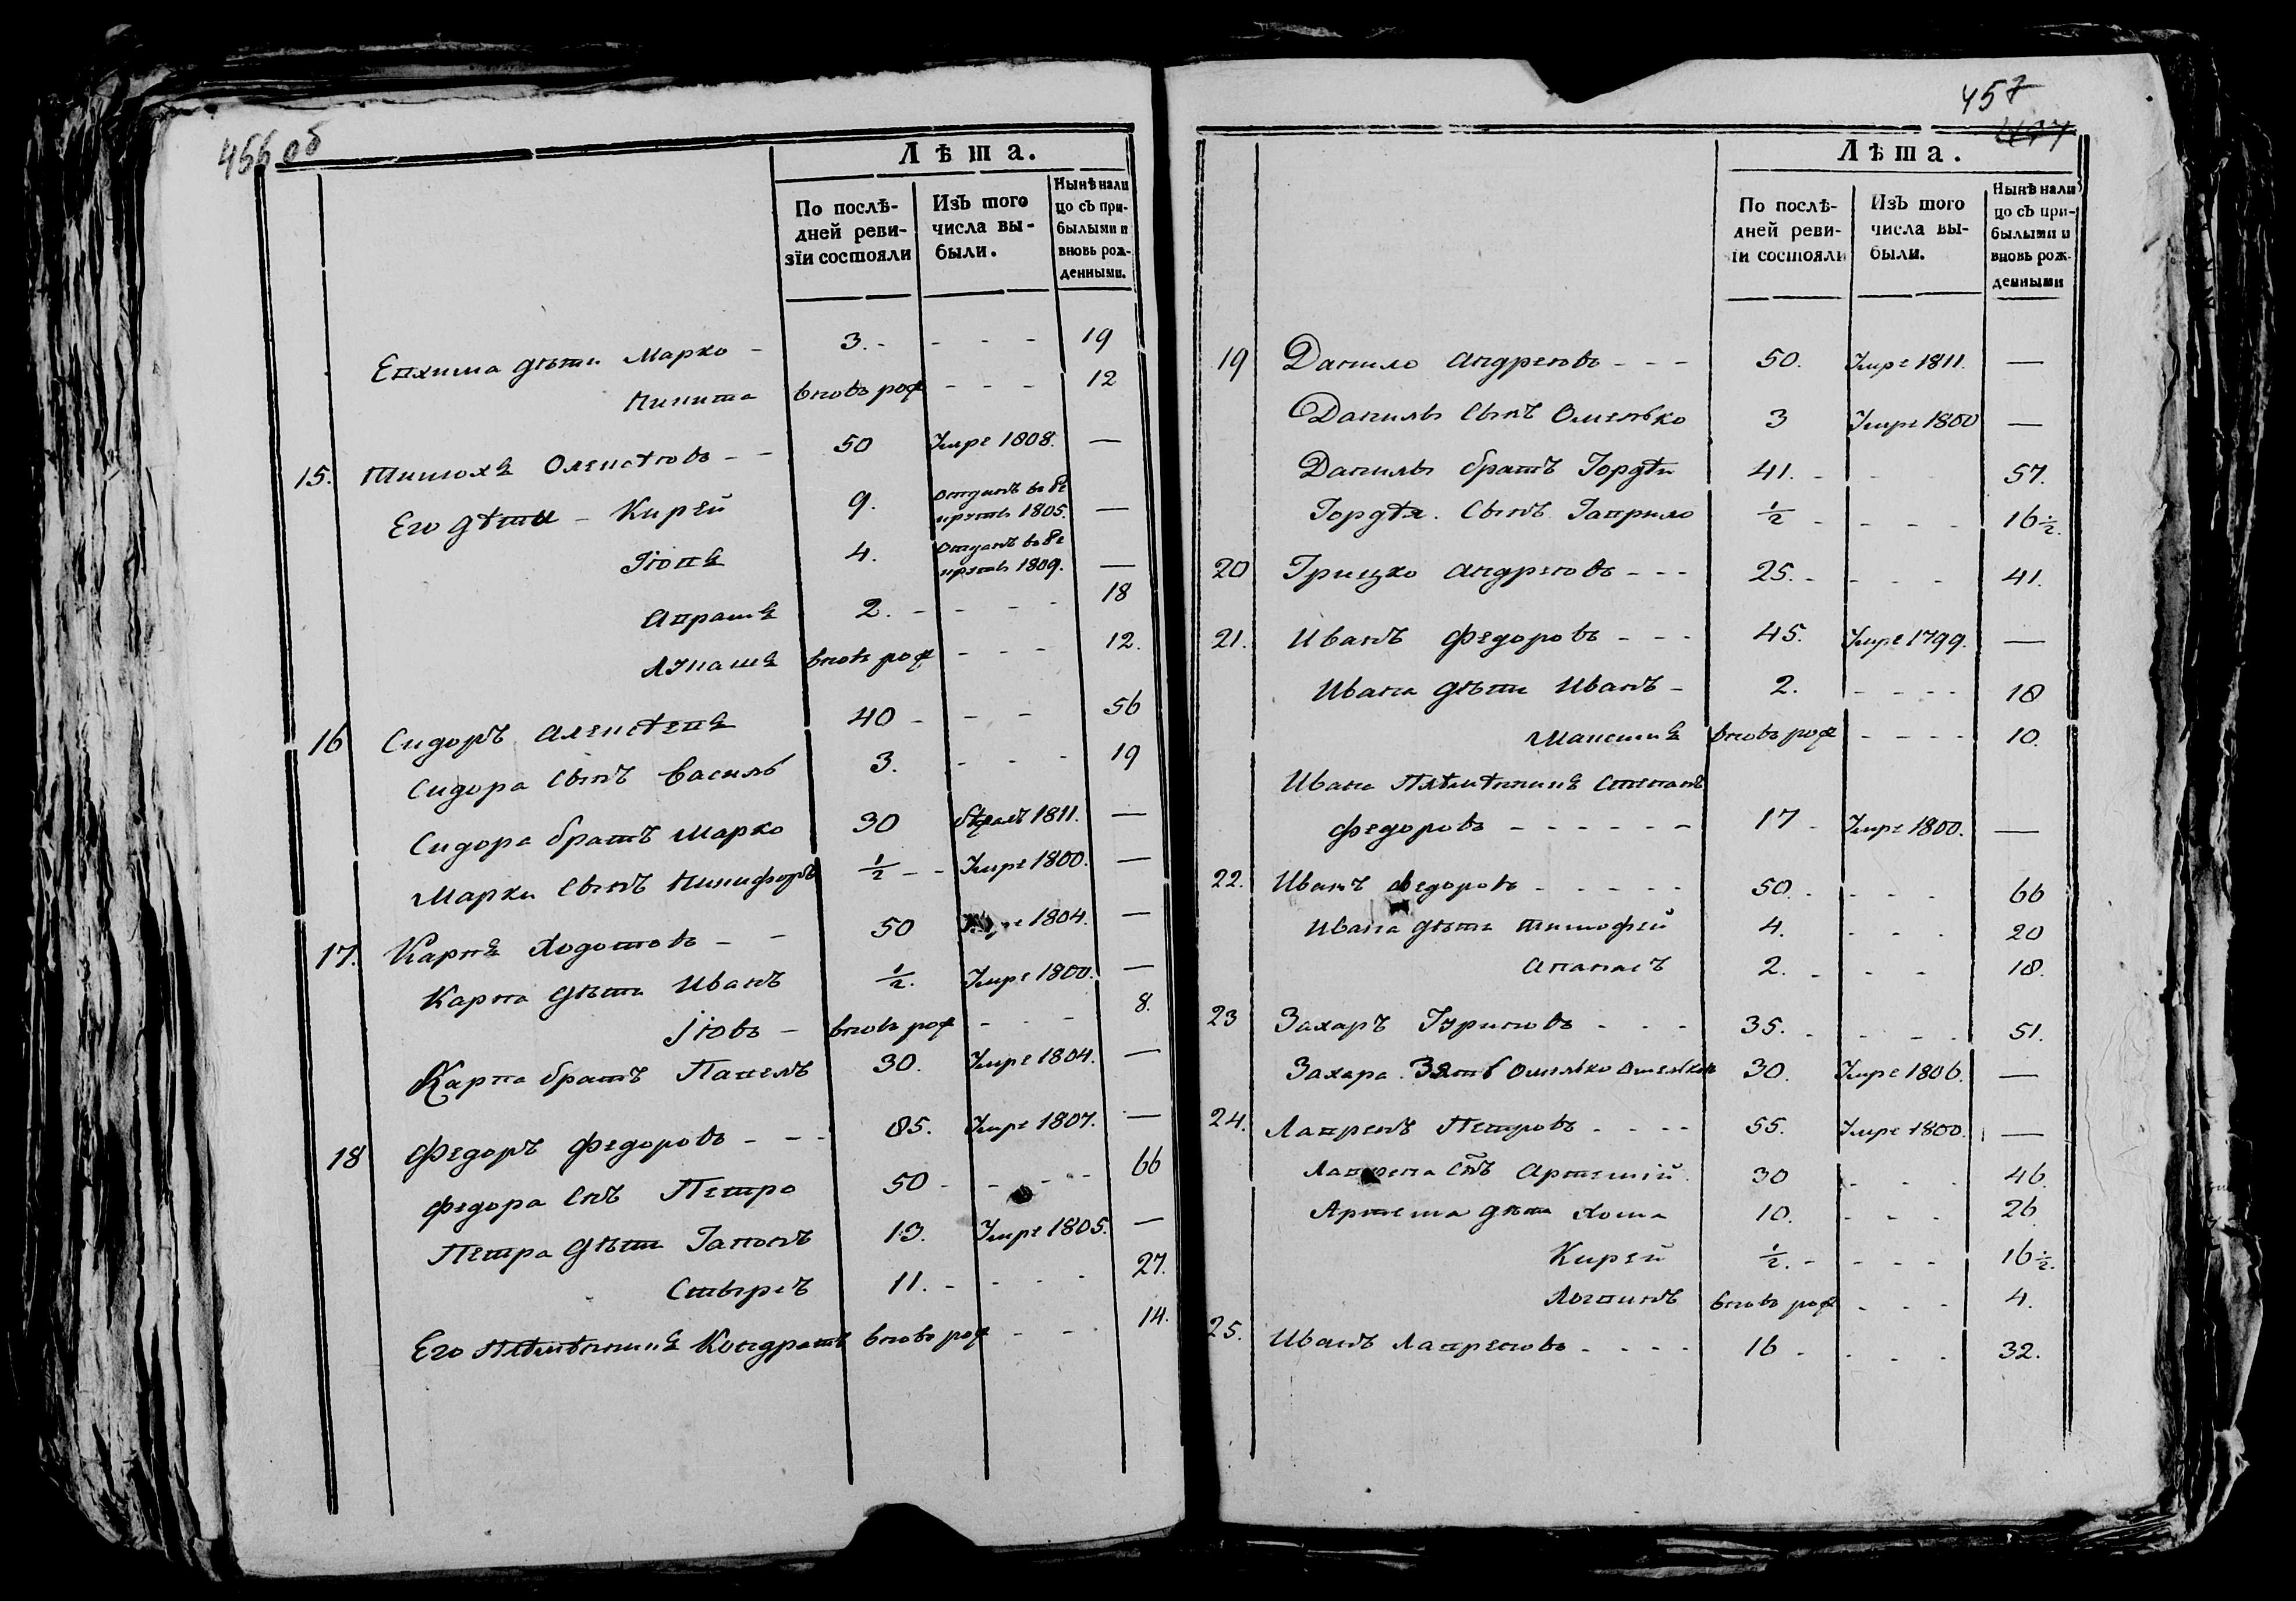 456 об
Лѣта.
По послѣ-
дней реви-
зїи состояли
Изъ того
числа вы-
были.
Нынѣ нали
цо съ при-
былыми и
вновь рож-
денными.
Евхима дѣти Марко - 3. - - - - 19
Никита вновь рож - - - 12
15. Тимохъ Олексѣювъ - - 50 Умре 1808. —
Его дѣти - Кирей 9. отданъ в ре
крутъ 1805. —
4. отданъ в ре
крутъ 1809. —
2. - - - - 18
вновь рож - - - 12.
16 Сидоръ Алексѣевъ 40 - - - 56
Сидора сынъ Василь 3. - - - 19
Сидора братъ Марко 30 1811. —
Марки сынъ Никифоръ ½ - - Умре 1800. —
17. Карпъ Ходотовъ - - 50 Умре 1804. —
Карпа дѣти Иванъ ½. Умре 1800. —
Іовъ - вновь рож - - - 8.
Карпа братъ Павелъ 30. Умре 1804. —
18 Федоръ Федоровъ - - - 85. Умре 1807. —
Федора снъ Петро 50 - - - - 66
Петра дѣти Гапонъ 13. Умре 1805. —
11. - - - - 27.
Его племѣнникъ Кондратъ вновь рож - - 14.
457
Лѣта.
По послѣ-
дней реви-
їи состояли
Изъ того
числа вы-
были.
Нынѣ нали
цо съ при-
былыми и
вновь рож-
денными
19 Данило Андреювъ - - - 50. Умре 1811. —
Данилы сынъ Омелько 3 Умре 1800 —
Данилы братъ Гордѣй 41. - - - 57.
Гордѣя. Сынъ Гаврило ½ - - - - 16½.
20 Грицко Андреювъ - - - 25. - - - - 41.
21. Иванъ Федоровъ - - - 45. Умре 1799. —
Ивана дѣти Иванъ - 2. - - - - 18
Максимъ вновь рож - - - - 10.
Ивана Племѣнникъ Степанъ
Федоровъ - - - - - - 17 - Умре 1800. —
22. Иванъ Федоровъ - - - - - 50. - - - - 66
Ивана дѣти Тимофей 4. - - - 20
Апанасъ 2. - - - 18.
23 Захаръ Гуриновъ - - - 35. - - - - 51.
Захара Зять Омелько 30. Умре 1806. —
24. Лавренъ Петровъ - - - - 55. Умре 1800. —
Лаврена снъ Артемій. 30 - - - 46.
Артема дѣти Хома 10. - - - 26
Кирей ½. - - - - 16½.
Логвинъ вновь рож - - - 4.
25. Иванъ Лавреновъ - - - - 16 - - - - 32.